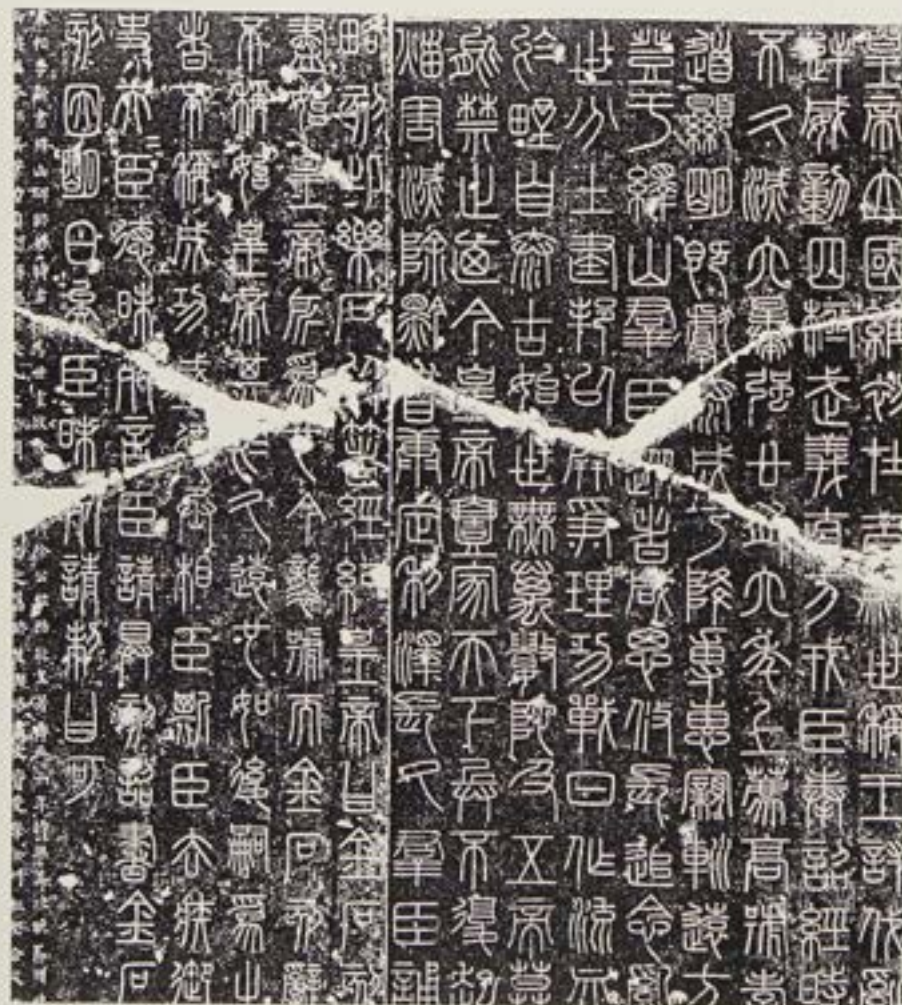 皇帝立國維初在昔世稱王討伐亂
逆威動四極武義直方戎臣奉詔經時
不久滅六暴強廿有六年上薦高號孝
道顯明既獻泰成乃降專惠親巡遠方
登于繹山羣臣從者咸思攸長追念亂
世分土建邦以開爭理功戰日作流血
於野自泰古始世無萬數陀及五帝莫
能禁止迺今皇帝壹家天下兵不復起
災害滅除黔首康定利澤長久羣臣誦
略刻此樂石以著經紀皇帝曰金石刻
盡始皇帝所為也今襲號而金石刻辭
不稱始皇帝其於久遠也如後嗣為之
者不稱成功盛德丞相臣斯臣去疾御
史夫臣德昧死言臣請具刻詔書金石
刻因明白矣臣昧死請制曰可